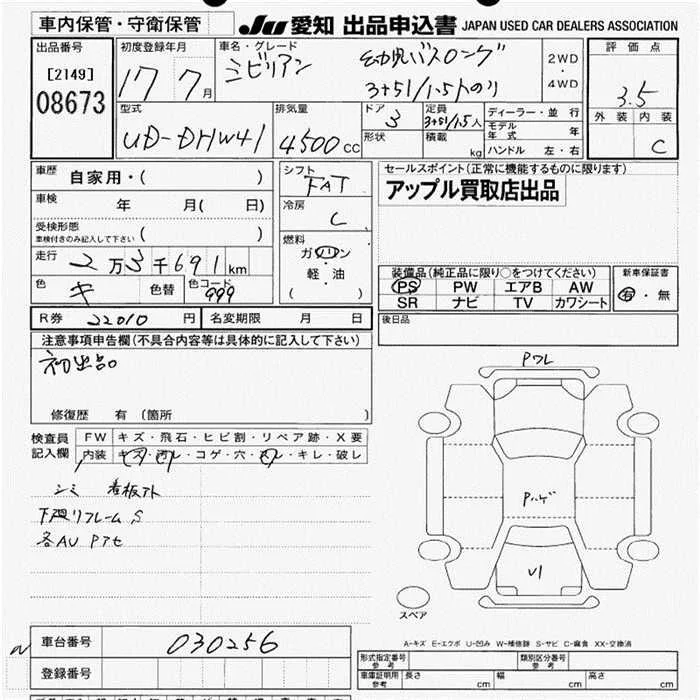 車内保管・守衛保管
JU 愛知 出品申込書 JAPAN USED CAR DEALERS ASSOCIATION
出品番号
[2149]
08673
初度登録年月
17 7月
車名・グレード
シビリアン
幼児バスロング
3+51/1.5人のり
2WD
・
4WD
評価点
3.5
外装 内装
C
型式
UD-DHW41
排気量
4500 CC
ドア
3
形状
定員
3+51/1.5人
積載
kg
ディーラー・並行
モデル年式 年
ハンドル 左・右
車歴
自家用・( )
車検
年 月( 日)
受検形態
車検付きのみ記入して下さい ( )
走行
2万3千691km
色
キ
色替
色コード
999
シフト
FAT
冷房
C
燃料
ガソリン
・
軽・油
( )
セールスポイント(正常に機能するものに限ります)
アップル買取店出品
装備品(純正品に限り○をつけてください)
PS PW エアB AW
SR ナビ TV カワシート
新車保証書
有・無
R券 22010 円
名変期限 月 日
後日品
注意事項申告欄(不具合内容等は具体的に記入して下さい)
初出品
修復歴 有(箇所 )
検査員
記入欄
FW キズ・飛石・ヒビ割・リペア跡・X要
内装 キズ・汚レ・コゲ・穴・スレ・キレ・破レ
シミ 看板下ト
下廻リフレームS
各AU Pアセ
Pワレ
Pハゲ
U1
スペア
A-キズ E-エクボ U-凹み W-補修跡 S-サビ C-腐食 XX-交換済
車台番号
030256
登録番号
形式指定番号
参考
類別区分番号
参考
車庫証明用
参考
長さ cm
幅 cm
高さ cm